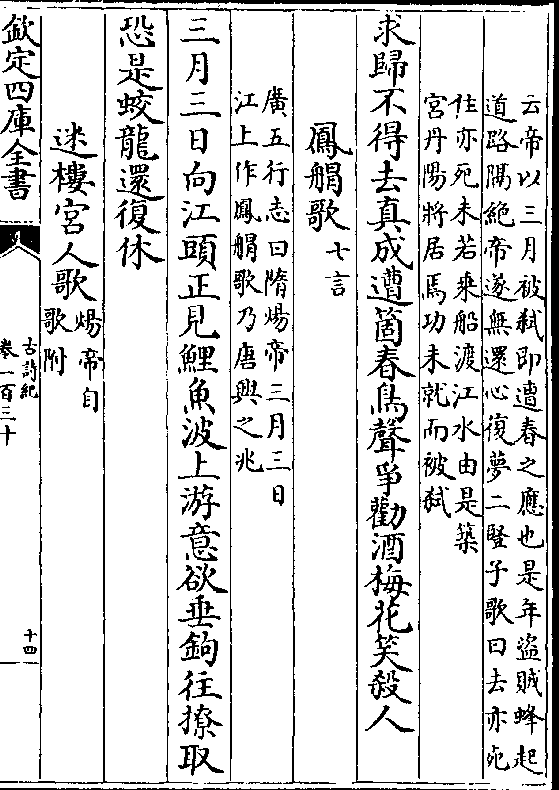 云帝以三月被弑即遭春之應也是年盗賊蜂起
道路隔絶帝遂無還心復夢二竪子歌曰去亦死
住亦死未若乘船渡江水由是築
宫丹陽將居焉功未就而被弑
求歸不得去真成遭箇春鳥聲爭勸酒梅花笑殺人
鳳艒歌七言
廣五行志曰隋煬帝三月三日
江上作鳳艒歌乃唐興之兆
三月三日向江頭正見鯉魚波上游意欲垂鉤往撩取
恐是蛟龍還復休
迷樓宫人歌煬帝自
歌附
欽定四庫全書
古詩紀
卷一百三十
十四